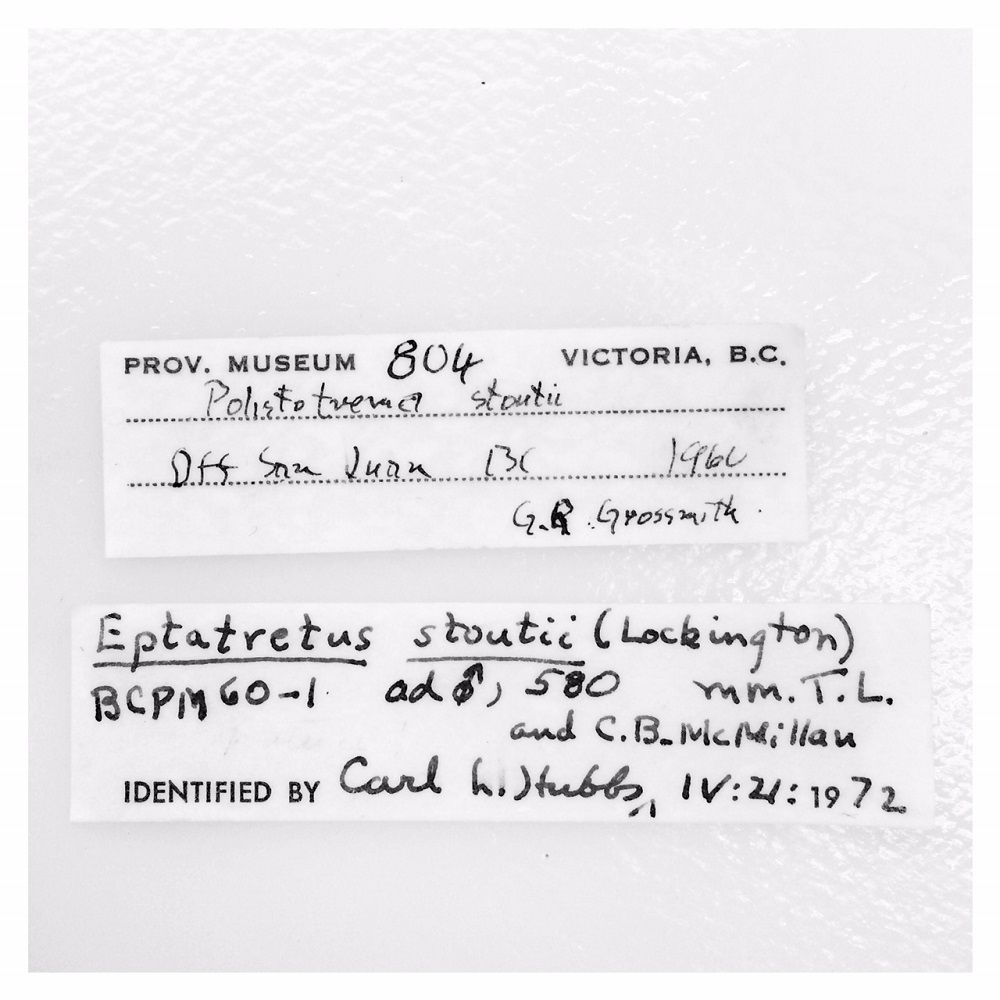 PROV. MUSEUM 804 VICTORIA, B.C.
Polistotrema stoutii
Off San Juan BC 1960
G.R. Grossmith.
Eptatretus stoutii (Lockington)
BCPM 60-1 ad ♂, 580 mm. T.L.
and C.B. McMillan
IDENTIFIED BY Carl L. Hubbs, IV:21:1972